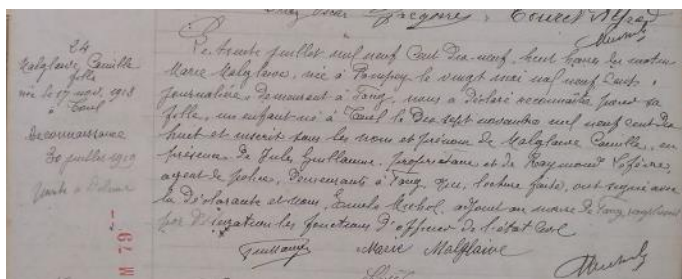 24
Malglaive Camille
fille
née le 17 nov. 1918
à Toul
Reconnaissance
30 juillet 1919
Le trente juillet mil neuf cent dix-neuf, huit heures du matin
Marie Malglaive, née à Pompey le vingt mai mil neuf cent,
journalière, demeurant à Foug, nous a déclaré reconnaître pour sa
fille, un enfant né à Toul le dix sept novembre mil neuf cent dix
huit et inscrit sous les nom et prénom de Malglaive Camille, en
présence de Jules Guillaume, propriétaire et de Raymond Lefèvre,
agent de police, demeurants à Foug, qui, lecture faite, ont signé avec
la déclarante et nous, Michel, adjoint au maire de Foug, remplissant
par délégation les fonctions d'officier de l'état civil
Marie Malglaive
M 79